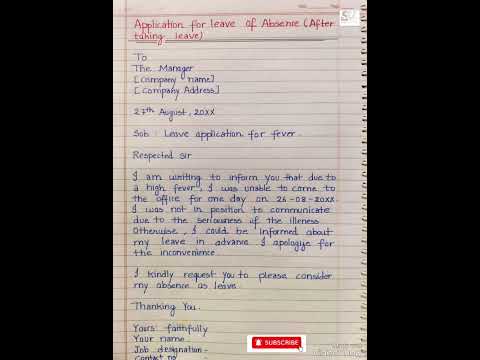 Application for leave of Absence (After
taking leave)
To
The Manager
[Company name]
[Company Address]
27th August, 20XX
Sob : Leave application for fever.
Respected sir
I am writing to inform you that due to
a high fever, I was unable to come to
the office for one day on 26-08-20XX.
I was not in position to communicate
due to the seriousness of the illeness
Otherwise, I could be informed about
my leave in advance. I apologye for
the inconvenience.
I kindly request you to please consider
my absence as leave.
Thanking You.
Yours faithfully
Your name
Job designation-
Contact no
SUBSCRIBE